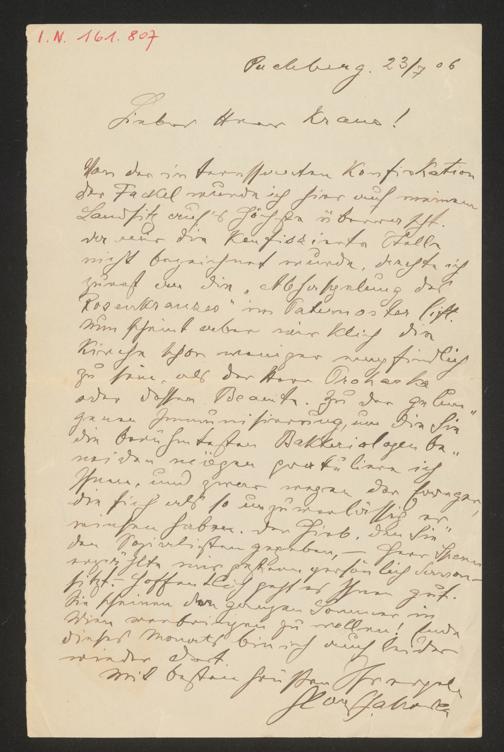 I.N. 161.807
Puchberg. 23/7 06
Lieber Herr Kraus!
Von der interessanten Konfiskation
der Fackel wurde ich hier auf meinem
Landsitz auf's Höchste überrascht.
da nur die konfiszierte Stelle
nicht bezeichnet wurde, dachte ich
zuerst an die "Abspaltung des
Rosenkranzes" im Paternoster lift.
Nun scheint aber wirklich die
Kirche schon weniger empfindlich
zu sein, als der Herr Prohaska
oder dessen Beamte. Zu der gelun-
genen Immunisierung, um die Sie
die berühmtesten Bakteriologen be-
neiden mögen gratuliere ich
Ihnen, und zwar wegen der
die sich als so unzuverlässig er-
wiesen haben. Der Hieb, den Sie
den Sozialisten gegeben, — Herr
erzählte mir gestern persönlich davon —
sitzt. — Hoffentlich geht es Ihnen gut.
Sie scheinen den ganzen Sommer in
Wien verbringen zu wollen! Ende
dieses Monats bin ich auch leider
wieder dort.
Mit besten Grüßen Ihr ergeb.